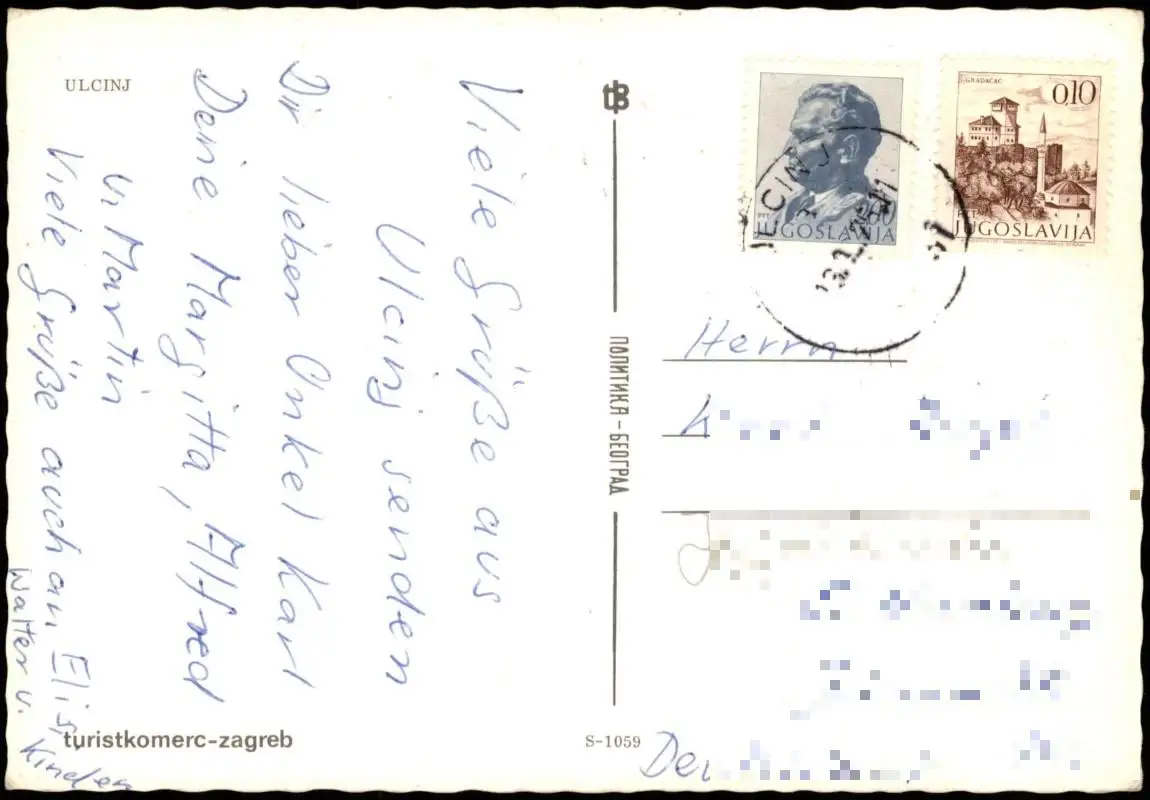 ULCINJ
Viele Grüße aus
Ulcinj senden
Dir lieber Onkel Karl
Deine Margitta, Alfred
u. Martin
Viele Grüße auch an Elis,
Walter u. Kinder
turistkomerc-zagreb
S-1059
ПОЛИТИКА - БЕОГРАД
PTT
JUGOSLAVIJA
GRADAČAC
0,10
PTT
JUGOSLAVIJA
ULCINJ
Herrn